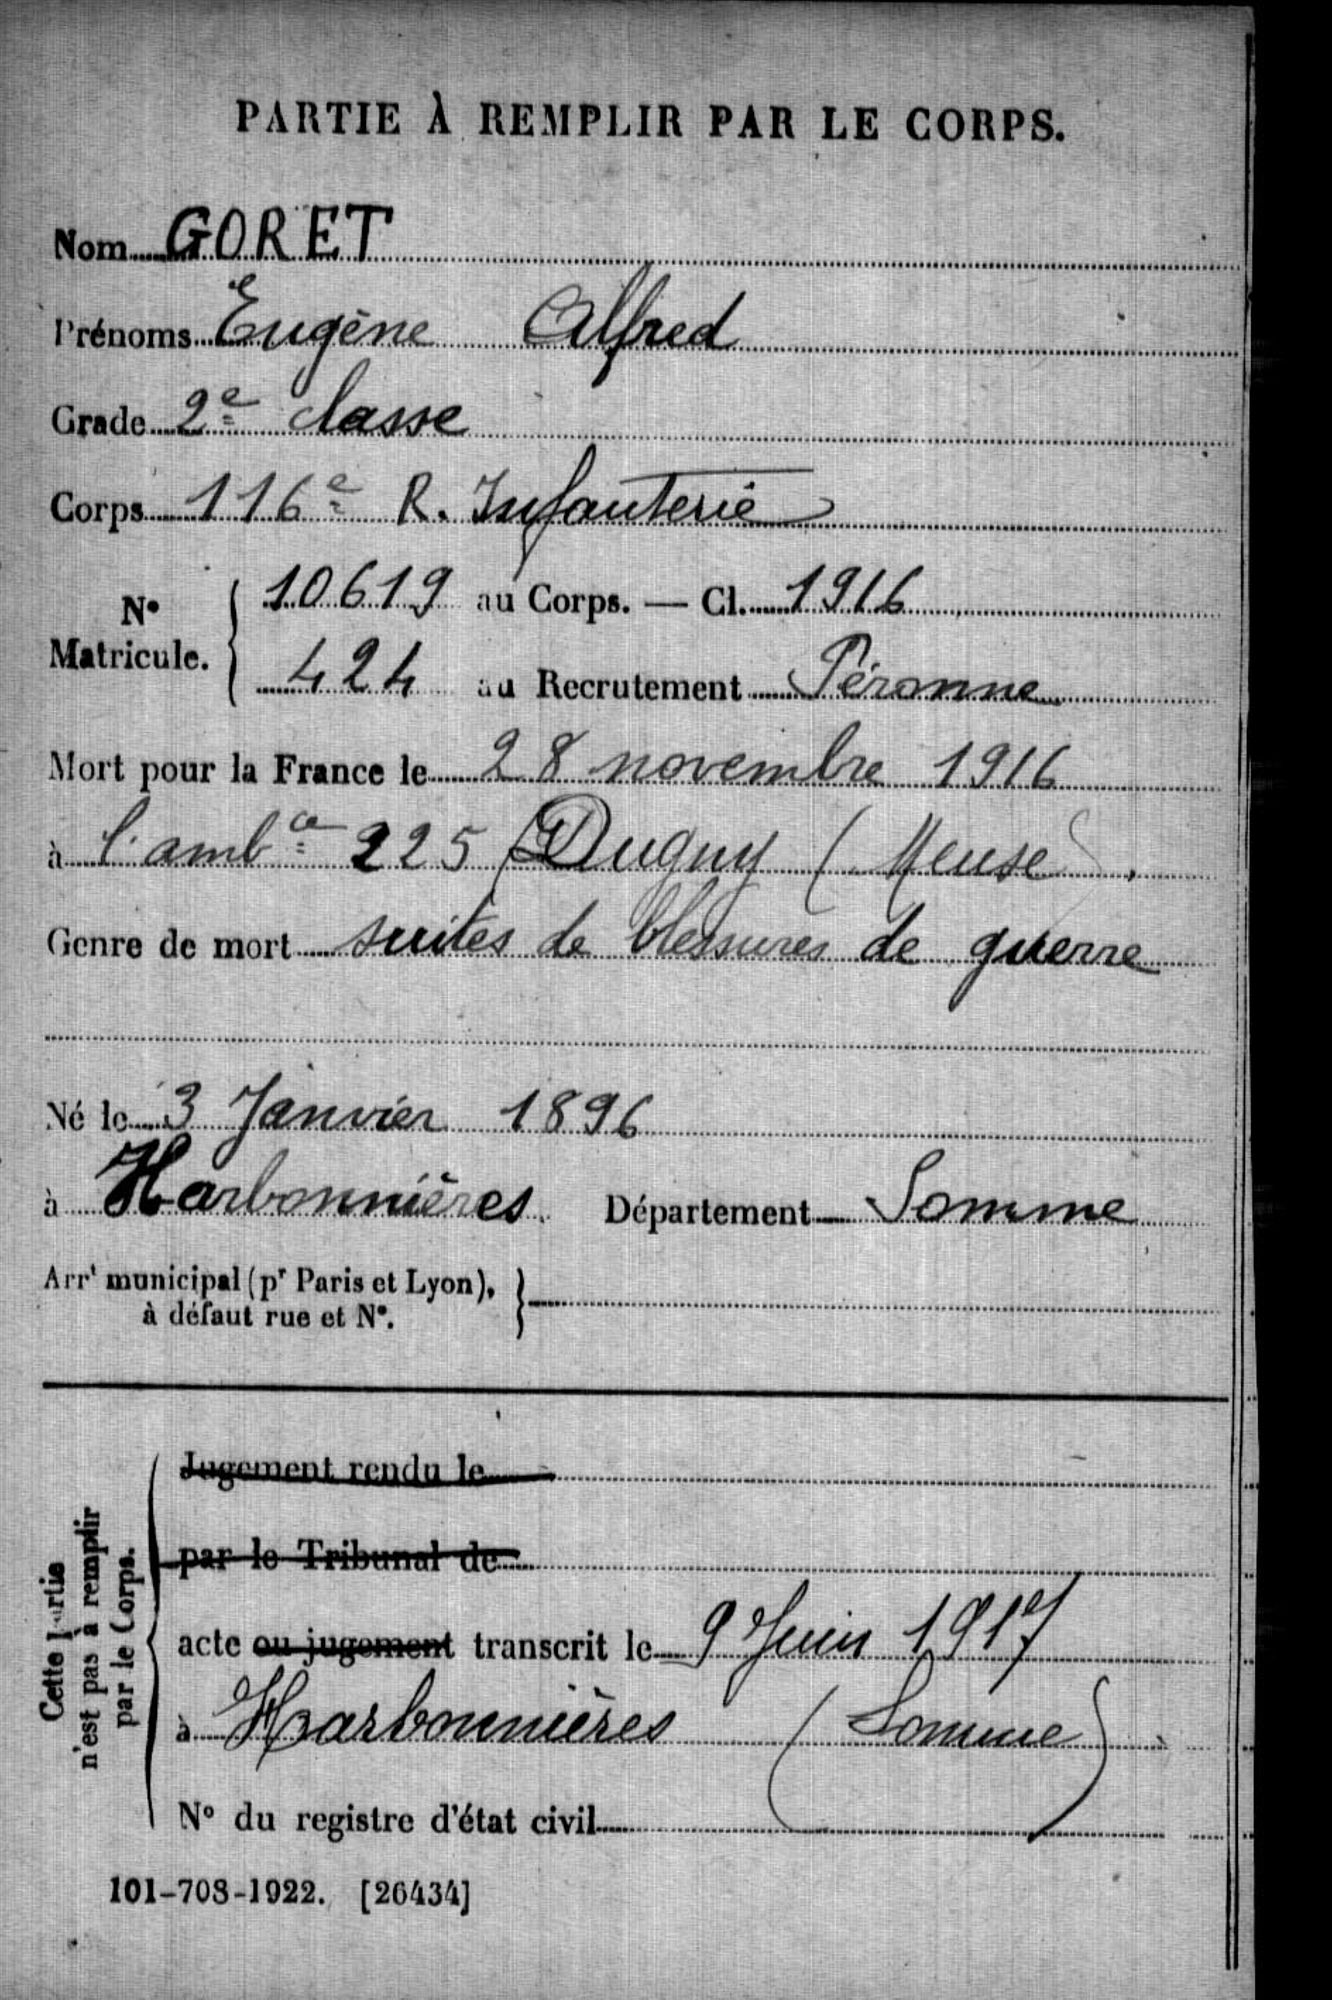 PARTIE À REMPLIR PAR LE CORPS.
Nom GORET
Prénoms Eugène Alfred
Grade 2e classe
Corps 116e R. Infanterie
N° Matricule. 10619 au Corps. — Cl. 1916
424 au Recrutement Péronne
Mort pour la France le 28 novembre 1916
à l'ambce 225 Dugny (Meuse).
Genre de mort suites de blessures de guerre
Né le 3 Janvier 1896
à Harbonnières Département Somme
Arrt municipal (pr Paris et Lyon),
à défaut rue et N°.
Cette partie
n'est pas à remplir
par le Corps.
Jugement rendu le
par le Tribunal de
acte ou jugement transcrit le 9 Juin 1917
à Harbonnières (Somme)
N° du registre d'état civil
101-708-1922. [26434]